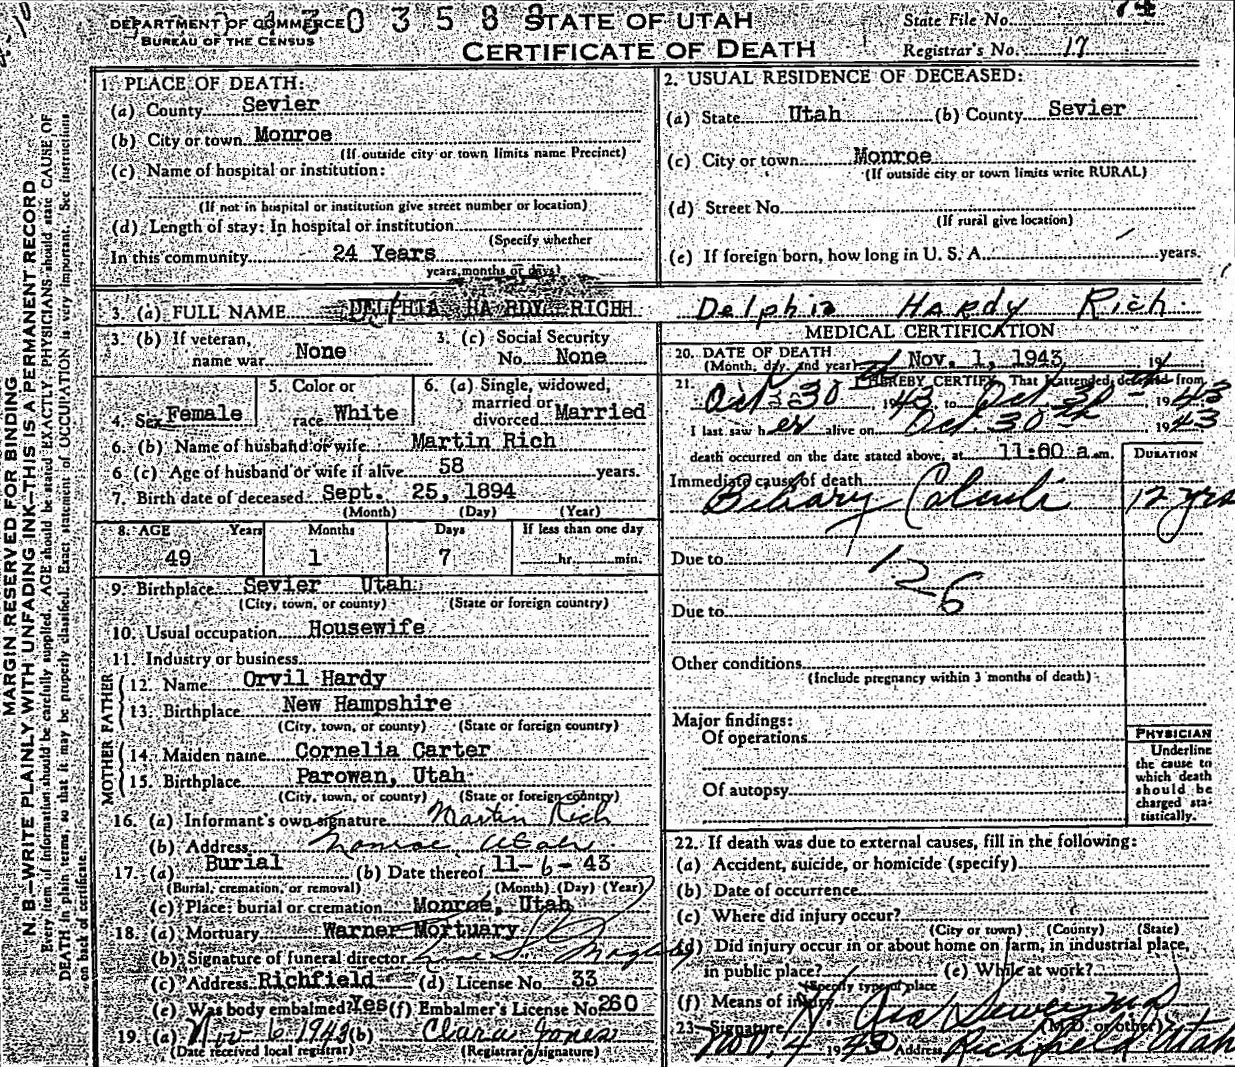 DEPARTMENT OF COMMERCE
BUREAU OF THE CENSUS
3 0 3 5 8
STATE OF UTAH
CERTIFICATE OF DEATH
State File No. 74
Registrar's No. 17
MARGIN RESERVED FOR BINDING
N. B.—WRITE PLAINLY WITH UNFADING INK—THIS IS A PERMANENT RECORD
Every item of information should be carefully supplied. AGE should be stated EXACTLY. PHYSICIANS should state CAUSE OF
DEATH in plain terms, so that it may be properly classified. Exact statement of OCCUPATION is very important. See instructions
on back of certificate.
1. PLACE OF DEATH:
(a) County Sevier
(b) City or town Monroe
(If outside city or town limits name Precinct)
(c) Name of hospital or institution:
(If not in hospital or institution give street number or location)
(d) Length of stay: In hospital or institution
(Specify whether
In this community 24 Years
years, months or days)
2. USUAL RESIDENCE OF DECEASED:
(a) State Utah (b) County Sevier
(c) City or town Monroe
(If outside city or town limits write RURAL)
(d) Street No.
(If rural give location)
(e) If foreign born, how long in U. S. A. years.
3. (a) FULL NAME DELPHIA HARDY RICH Delphia HARDY Rich
3. (b) If veteran, name war None
3. (c) Social Security No. None
4. Sex Female
5. Color or race White
6. (a) Single, widowed, married or divorced Married
6. (b) Name of husband or wife Martin Rich
6. (c) Age of husband or wife if alive 58 years.
7. Birth date of deceased Sept. 25, 1894
(Month) (Day) (Year)
8. AGE Years Months Days If less than one day
49 1 7 hr. min.
9. Birthplace Sevier Utah
(City, town, or county) (State or foreign country)
10. Usual occupation Housewife
11. Industry or business
FATHER
12. Name Orvil Hardy
13. Birthplace New Hampshire
(City, town, or county) (State or foreign country)
MOTHER
14. Maiden name Cornelia Carter
15. Birthplace Parowan, Utah
(City, town, or county) (State or foreign country)
16. (a) Informant's own signature Martin Rich
(b) Address Monroe, Utah
17. (a) Burial (b) Date thereof 11-6-43
(Burial, cremation, or removal) (Month) (Day) (Year)
(c) Place: burial or cremation Monroe, Utah
18. (a) Mortuary Warner Mortuary
(b) Signature of funeral director
(c) Address Richfield (d) License No. 33
(e) Was body embalmed Yes (f) Embalmer's License No. 260
19. (a) Nov 6 1943 (b) Clara Jones
(Date received local registrar) (Registrar's signature)
MEDICAL CERTIFICATION
20. DATE OF DEATH
(Month, day, and year) Nov. 1, 1943 19
21. I HEREBY CERTIFY, That I attended deceased from
Oct 30th, 1943 to Oct. 30th, 1943
I last saw her alive on Oct. 30th 1943
death occurred on the date stated above, at 11:00 a.m.
DURATION
Immediate cause of death
Biliary Calculi 12 yrs
Due to
126
Due to
Other conditions
(Include pregnancy within 3 months of death)
Major findings:
Of operations
Of autopsy
PHYSICIAN
Underline
the cause to
which death
should be
charged sta-
tistically.
22. If death was due to external causes, fill in the following:
(a) Accident, suicide, or homicide (specify)
(b) Date of occurrence
(c) Where did injury occur?
(City or town) (County) (State)
(d) Did injury occur in or about home on farm, in industrial place,
in public place? (e) While at work?
(Specify type of place
(f) Means of injury
23. Signature
(M.D. or other)
Nov. 4 1943 Address Richfield Utah